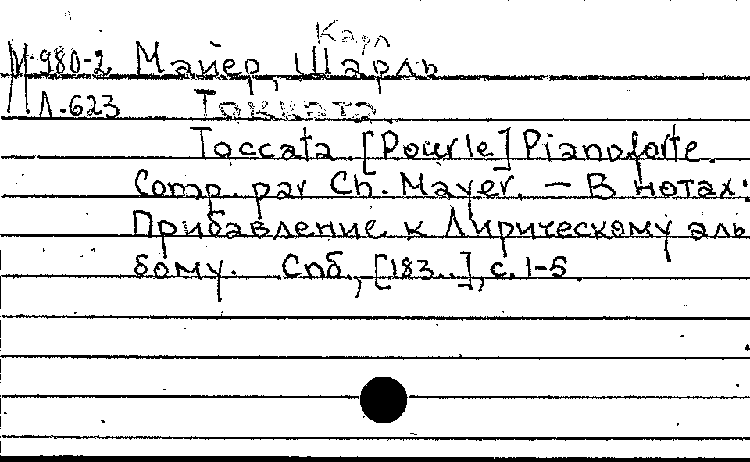 Карл
М-980-2 Майер, Шарль
Л.-623 Токката.
Toccata [Pour le] Pianoforte.
Comp. par Ch. Mayer. — В нотах:
Прибавление к Лирическому аль
бому. Спб., [183..], с. 1-5.